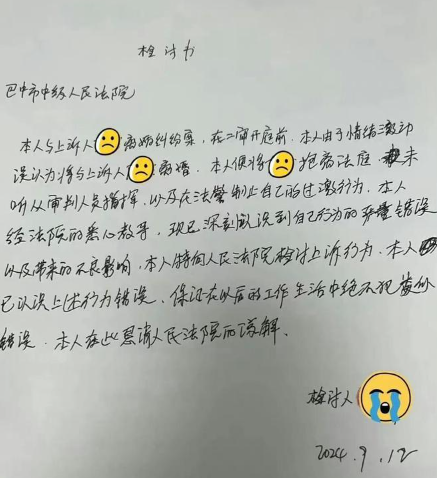 检讨书
巴中市中级人民法院
本人与上诉人离婚纠纷案，在二审开庭前，本人由于情绪激动
误认为将与上诉人离婚。本人便将抱离法庭未
听从审判人员指挥，以及在法警制止自己的过激行为。本人
经法院的悉心教导，现已深刻认识到自己行为的严重错误
以及带来的不良影响，本人特向人民法院检讨上诉行为，本人
已认识上述行为错误、保证在以后的工作生活中绝不犯类似
错误。本人在此恳请人民法院的谅解、
检讨人
2024.9.12